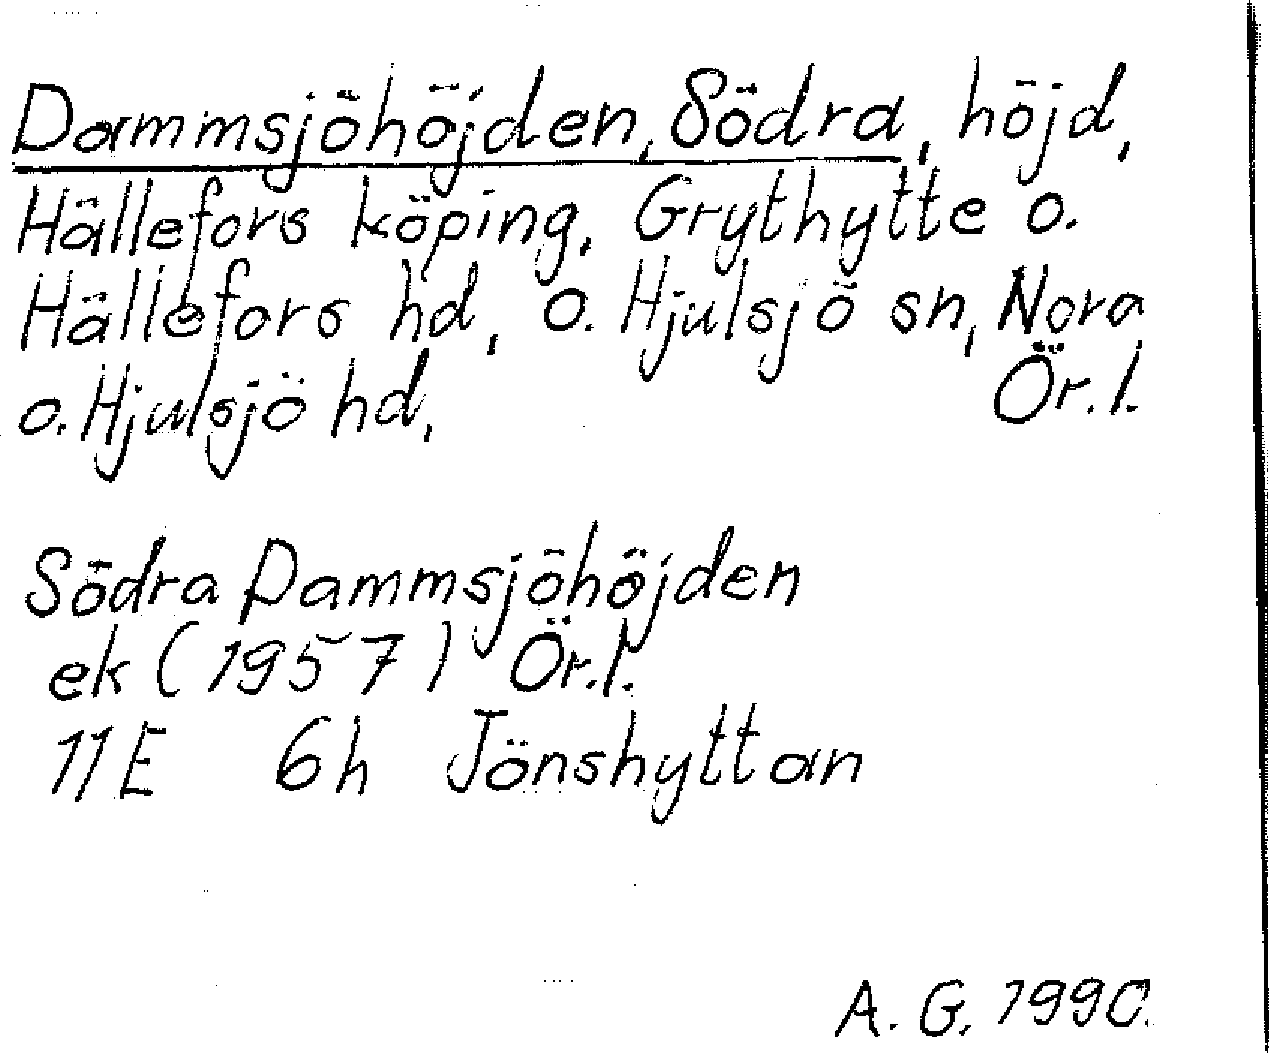 Dammsjöhöjden, Södra, höjd,
Hällefors köping, Grythytte o.
Hällefors hd, o. Hjulsjö sn, Nora
o. Hjulsjö hd, Ör. l.
Södra Dammsjöhöjden
ek (1957) Ör. l.
11E 6h Jönshyttan
A. G. 1990.